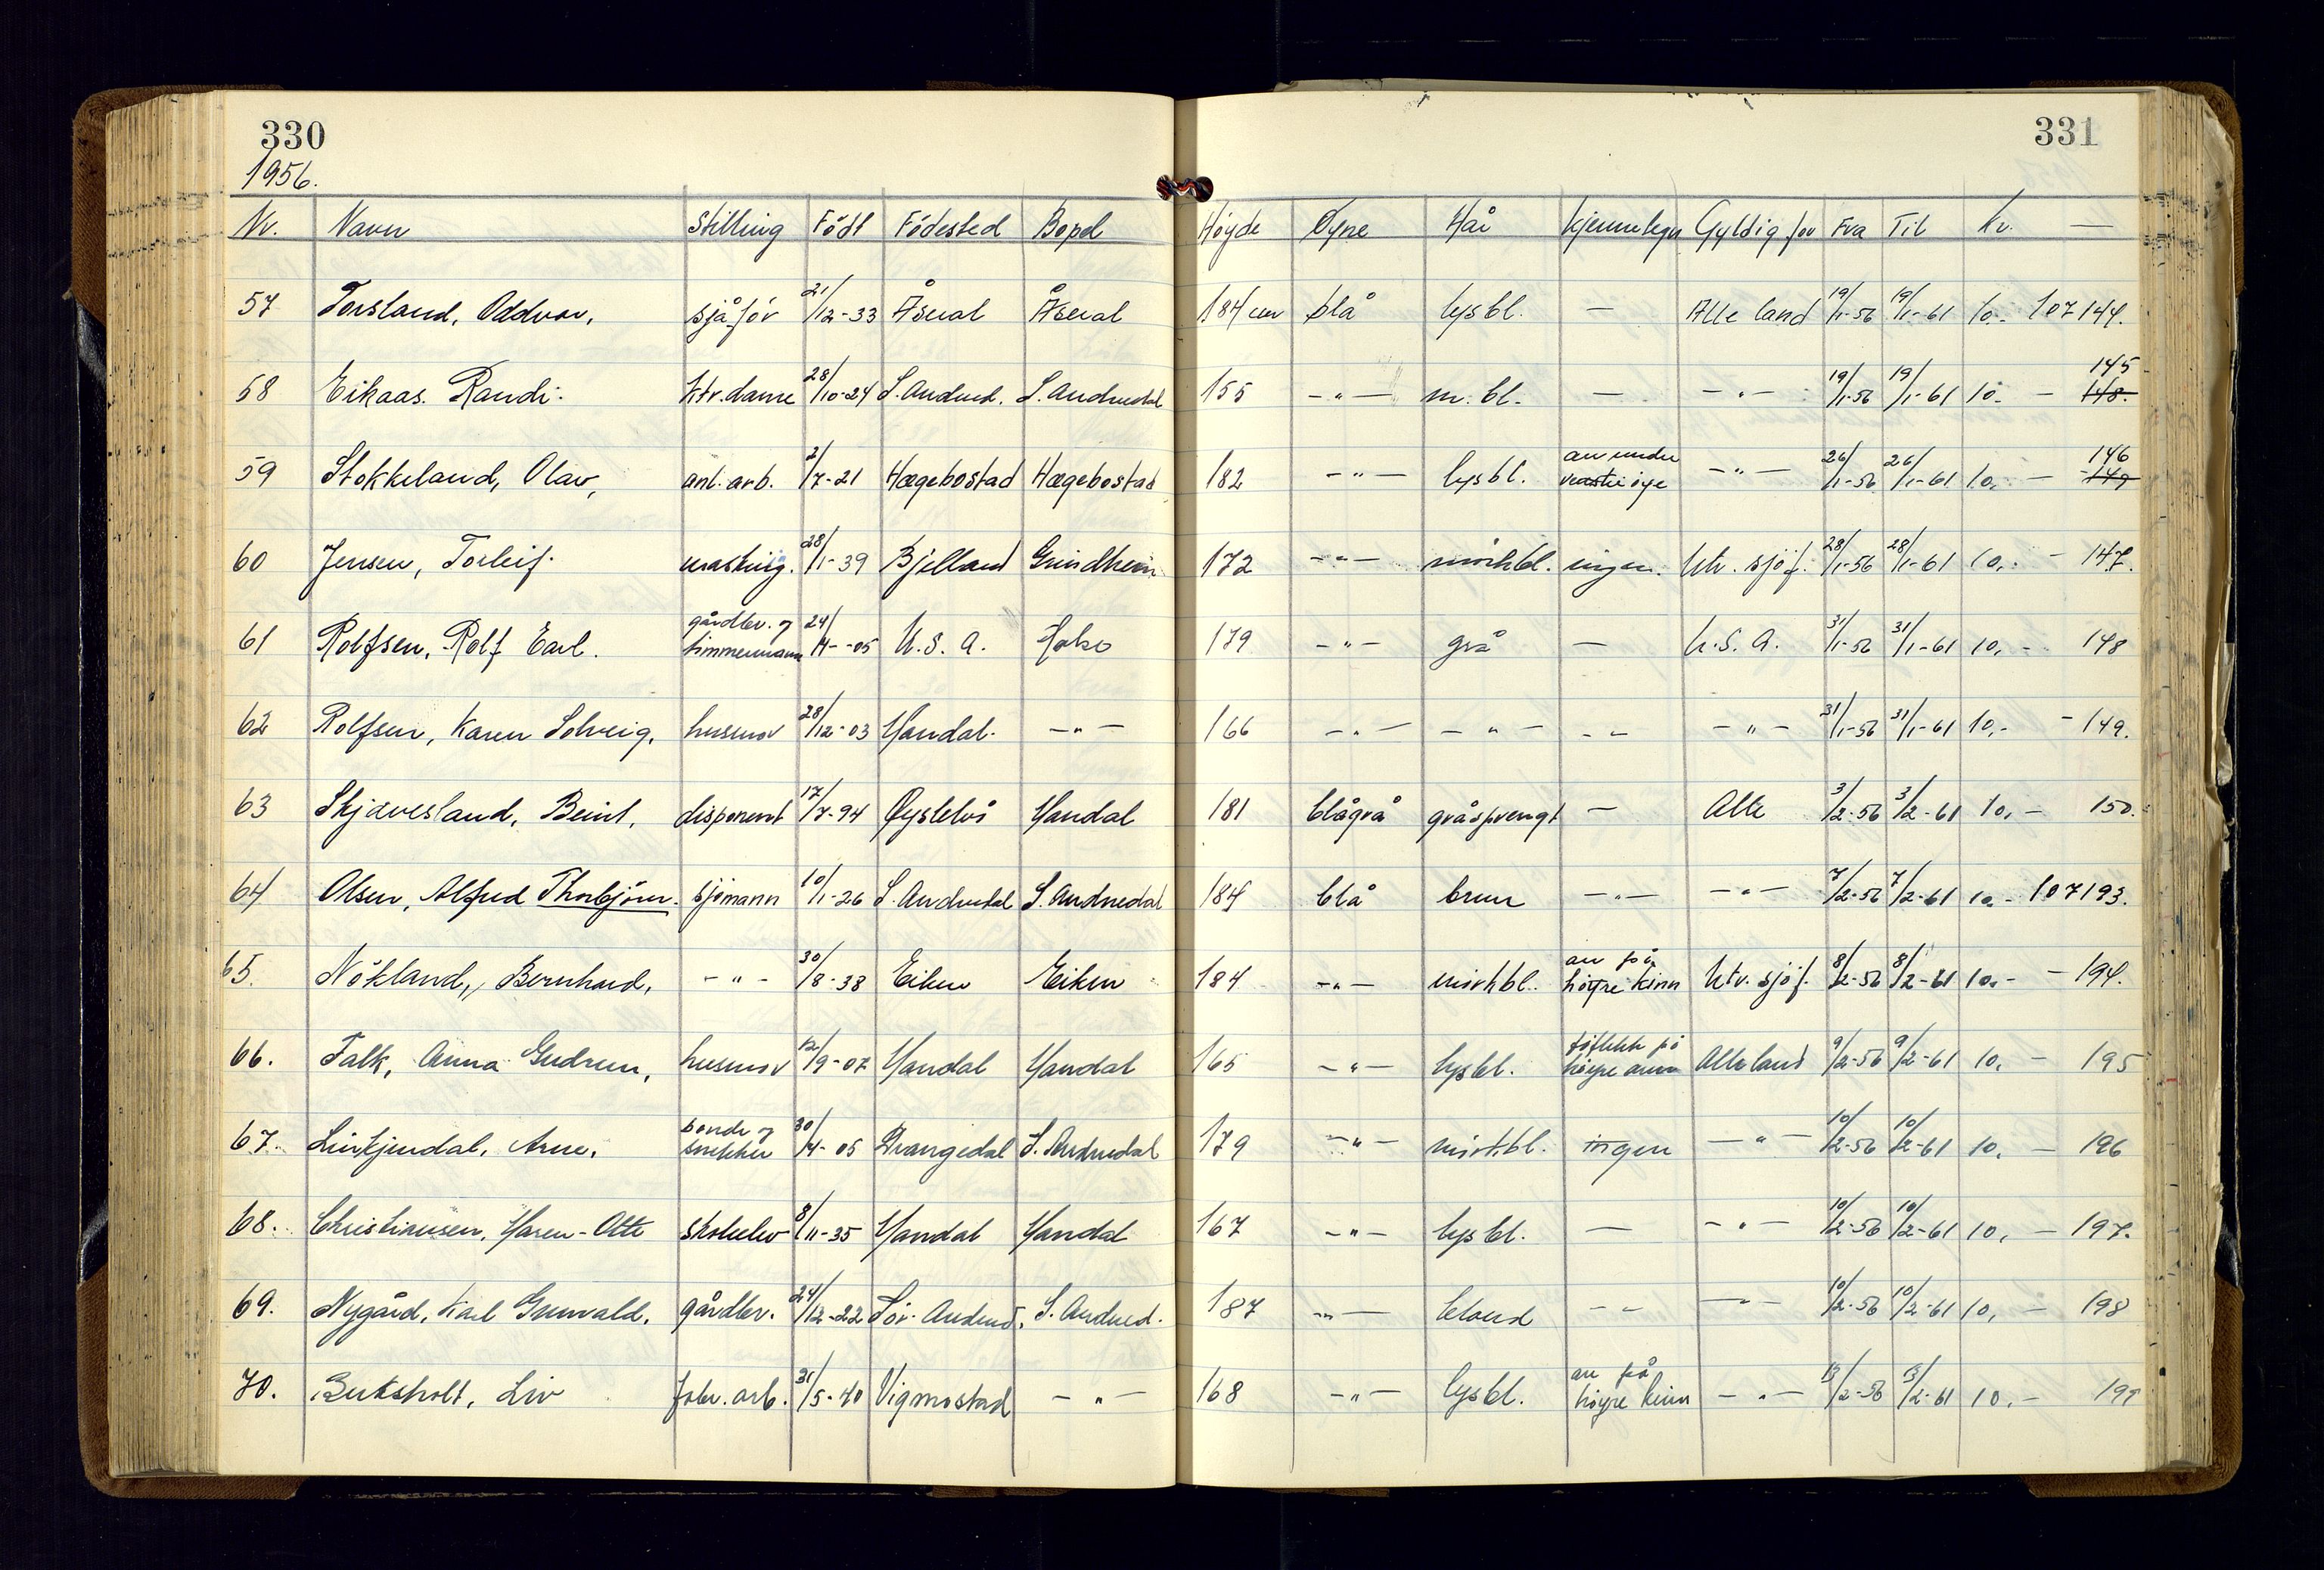 330
331
1956.
Nr. Navn Stilling Födt Födested Bopel Høyde Øyne Hår Kjennetegn Gyldig for Fra Til Kr. —
57 Torsland, Oddvar, sjåfør 21/12-33 Åseral Åseral 184 cm blå lysbl. — Alle land 19/1-56 19/1-61 10.- 107144.
58 Eikaas. Randi. ktr.dame 28/10-24 S. Audned. S. Audnedal 155 -"- m. bl. — -"- 19/1-56 19/1-61 10.- 145 148.
59 Stokkeland, Olav, anl. arb. 2/7-21 Hægebostad Hægebostad 182 -"- lysbl. arr under venstre øye -"- 26/1-56 26/1-61 10.- 146 149
60 Jensen, Torleif. masking. 28/1-39 Bjelland Grindheim 172 -"- mörkbl. ingen. Utv. sjöf. 28/1-56 28/1-61 10.- - 147.
61 Rolfsen, Rolf Earl. gårdbr. og timmermann 24/4--05 U.S.A. Holso 179 -"- grå — U.S.A. 31/1-56 31/1-61 10,- 148
62 Rolfsen, Karen Solveig, husmor 28/12-03 Mandal. -"- 166 -"- -"- -- -"- 31/1-56 31/1-61 10,- - 149.
63 Skjævesland, Beint, disponent 17/7-94 Øyslebö Mandal 181 blågrå gråsprengt — Alle 3/2-56 3/2-61 10,- 150.
64 Olsen, Alfred Thorbjörn. sjömann 10/1-26 S. Audnedal S. Audnedal 184 blå brun -"- -"- 7/2-56 7/2-61 10.- 107193.
65. Nökland, Bernhard, -"- 30/8-38 Eiken Eiken 184 -"- mörkbl. arr på höyre kinn Utv. sjöf. 8/2-56 8/2-61 10.- - 194.
66. Falk, Anna Gudrun, husmor 12/9-07 Mandal Mandal 165 -"- lysbl. föflekk på höyre arm Alle land 9/2-56 9/2-61 10,- 195
67. Linkjendal, Arne, bonde og snekker 30/4-05 Drangedal S. Audnedal 179 -"- mörkbl. ingen -"- 10/2-56 10/2-61 10,- 196
68. Christiansen, Maren-Otte skoleelev 8/11-35 Mandal Mandal 167 -"- lysbl. — -"- 10/2-56 10/2-61 10,- 197.
69. Nygård, Karl Grunvald. gårdbr. 24/12-22 Sör-Audned. S. Audned. 187 -"- blond -- -"- 10/2-56 10/2-61 10,- 198
70. Buksholt, Liv fabr. arb. 31/5-40 Vigmostad -"- 168 -"- lysbl. arr på höyre kinn -"- 13/2-56 13/2-61 10.- 199